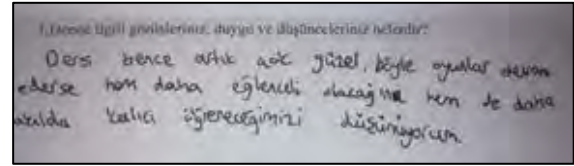 1.Dersle ilgili görüşleriniz, duygu ve düşünceleriniz nelerdir?
Ders bence artık çok güzel, böyle oyunlar devam
ederse hem daha eğlenceli olacağına hem de daha
akılda kalıcı öğreneceğimizi düşünüyorum